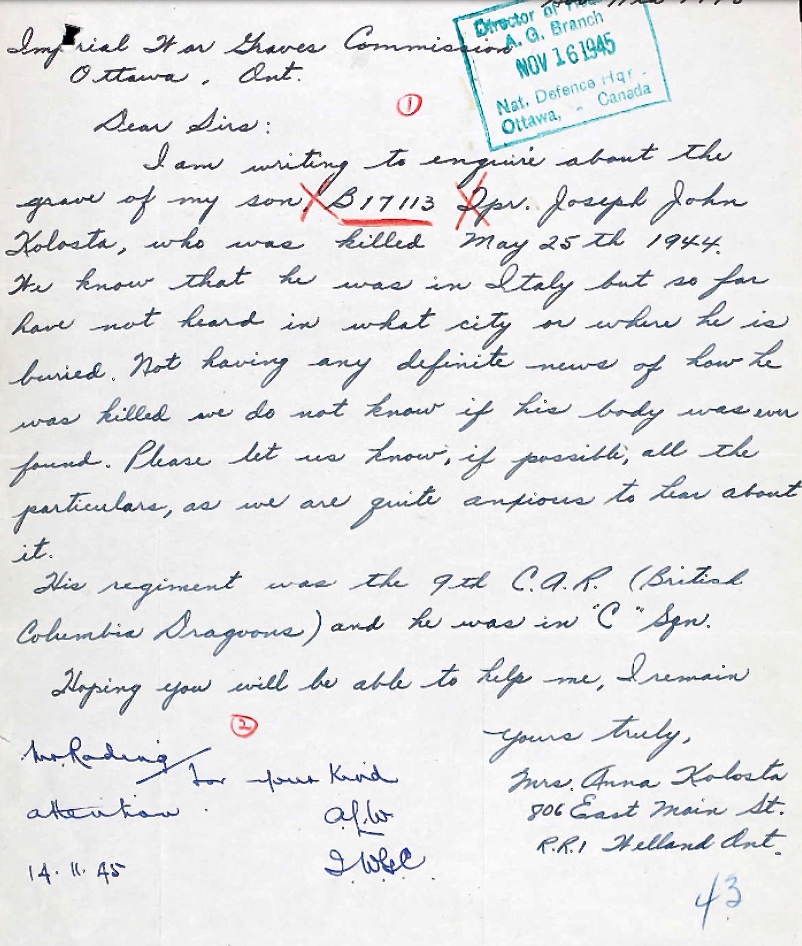 Imperial War Graves Commission
Ottawa, Ont.
Director of
A. G. Branch
NOV 16 1945
Nat. Defence Hqr.
Ottawa, - Canada
1
Dear Sirs:
I am writing to enquire about the
grave of my son B17113 Tpr. Joseph John
Kolosta, who was killed May 25th 1944.
We know that he was in Italy but so far
have not heard in what city or where he is
buried. Not having any definite news of how he
was killed we do not know if his body was ever
found. Please let us know, if possible, all the
particulars, as we are quite anxious to hear about
it.
His regiment was the 9th C.A.R. (British
Columbia Dragoons) and he was in "C" Sqn.
Hoping you will be able to help me, I remain
Yours truly,
Mrs. Anna Kolosta
806 East Main St.
R.R.1 Welland Ont.
2
Mr.
for your kind
attention.
I.W.G.C.
14.11.45
43